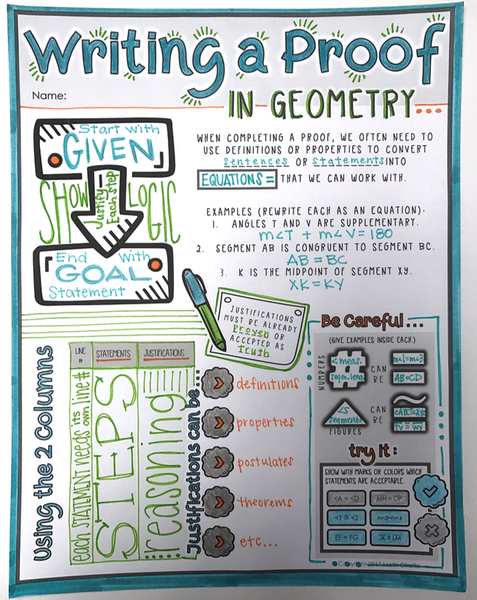 Writing a Proof
Name:
IN GEOMETRY...
Start with
GIVEN
SHOW LOGIC
Justify
Each step
End With
GOAL
Statement
WHEN COMPLETING A PROOF, WE OFTEN NEED TO
USE DEFINITIONS OR PROPERTIES TO CONVERT
Sentences OR Statements INTO
EQUATIONS = THAT WE CAN WORK WITH.
EXAMPLES (REWRITE EACH AS AN EQUATION):
1. ANGLES T AND V ARE SUPPLEMENTARY.
m∠T + m∠V = 180
2. SEGMENT AB IS CONGRUENT TO SEGMENT BC.
AB = BC
3. K IS THE MIDPOINT OF SEGMENT XY.
XK = KY
JUSTIFICATIONS
MUST BE ALREADY
Proven OR
ACCEPTED AS
Truth.
Using the 2 Columns
LINE
#
STATEMENTS
JUSTIFICATIONS
each STATEMENT needs its own line#
STEPS
reasoning
Justifications can be...
definitions
properties
postulates
theorems
etc...
Be Careful...
(GIVE EXAMPLES INSIDE EACH.)
NUMBERS
< meas.
CAN
BE
AB=CD
FIGURES
<s
segments
CAN
BE
≅
try it:
SHOW WITH MARKS OR COLORS WHICH
STATEMENTS ARE ACCEPTABLE.
<A = <D
MN = OP
EF = FG
Copyright 2017 Math Giraffe